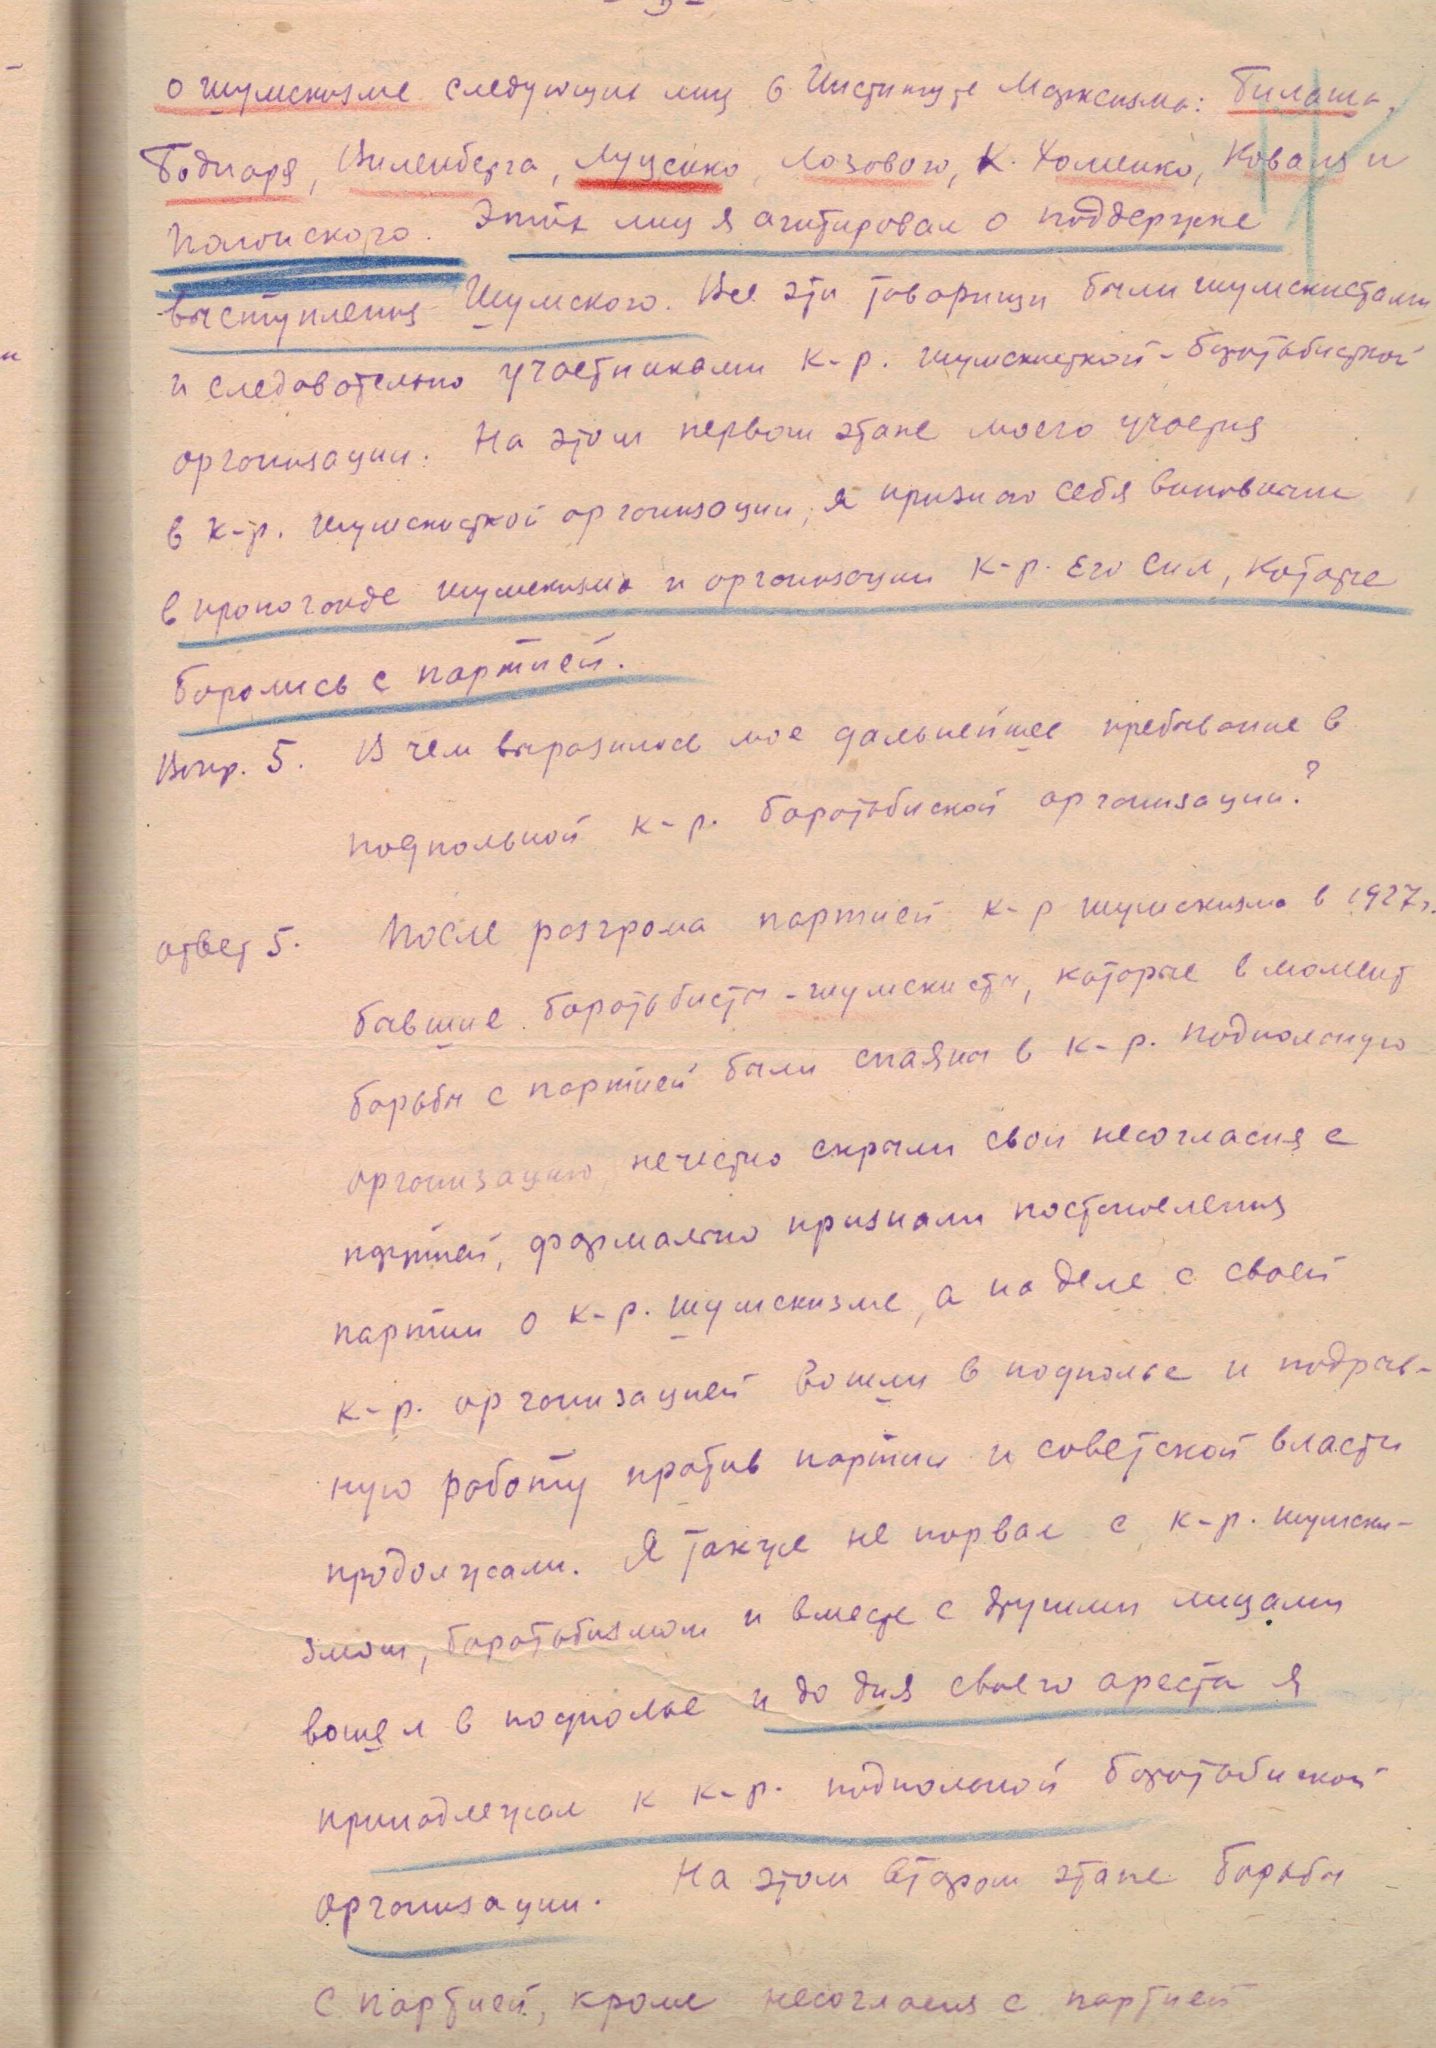 - 5 -
о шумскизме следующих лиц в Институте Марксизма: Билаша,
Боднаря, Виленберга, Луценко, Лозового, К. Хоменко, Коваля и
Полонского. Этих лиц я агитировал о поддержке
выступления Шумского. Все эти товарищи были шумскистами
и следовательно участниками к-р. шумскистской-боротьбистской
организации. На этом первом этапе моего участия
в к-р. шумскистской организации, я признаю себя виновным
в пропоганде шумскизма и организации к-р. его сил, которые
боролись с партией.
Вопр. 5. В чем выразилось мое дальнейшее пребывание в
подпольной к-р. боротьбиской организации?
ответ 5. После разгрома партией к-р шумскизма в 1927 г.
бывшие боротьбисты-шумскисты, которые в момент
борьбы с партией были спаяны в к-р. подпольную
организацию, нечестно скрыли свои несогласия с
партией, формально признали постановления
партии о к-р. шумскизме, а на деле с своей
к-р. организацией вошли в подполье и подрыв-
ную работу против партии и советской власти
продолжали. Я также не порвал с к-р. шумски-
змом, боротьбизмом и вместе с другими лицами
вошел в подполье и до дня своего ареста я
принадлежал к к-р. подпольной боротьбиской
организации. На этом втором этапе борьбы
с партией, кроме несогласия с партией